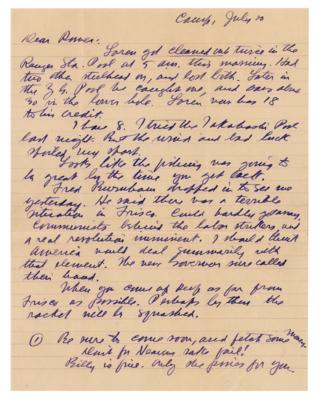 Camp, July 20
Dear Romer:
Loren got cleaned out twice in the
Ranger Sta. Pool at 5 a.m. this morning. Had
two other steelhead on, and lost both. Later in
the Z.G. Pool he caught one, and was alone
so in the lower hole. Loren now has 18
to his credit.
I have 8. I tried the Takahashi Pool
last night. But the wind and bad luck
spoiled my sport.
Looks like the fishing was going to
be great by the time you get back.
Fred Burnham dropped in to see me
yesterday. He said there was a terrible
situation in Frisco. Could hardly
communists behind the labor strikers, and
a real revolution imminent. I should think
America would deal summarily with
that element. The new Governor sure called
their hand.
When you come up keep as far from
Frisco as possible. Perhaps by then the
racket will be squashed.
① Be sure to come soon, and fetch some money
Don't for Heavens sake fail!
Billy is fine. Only she for you.